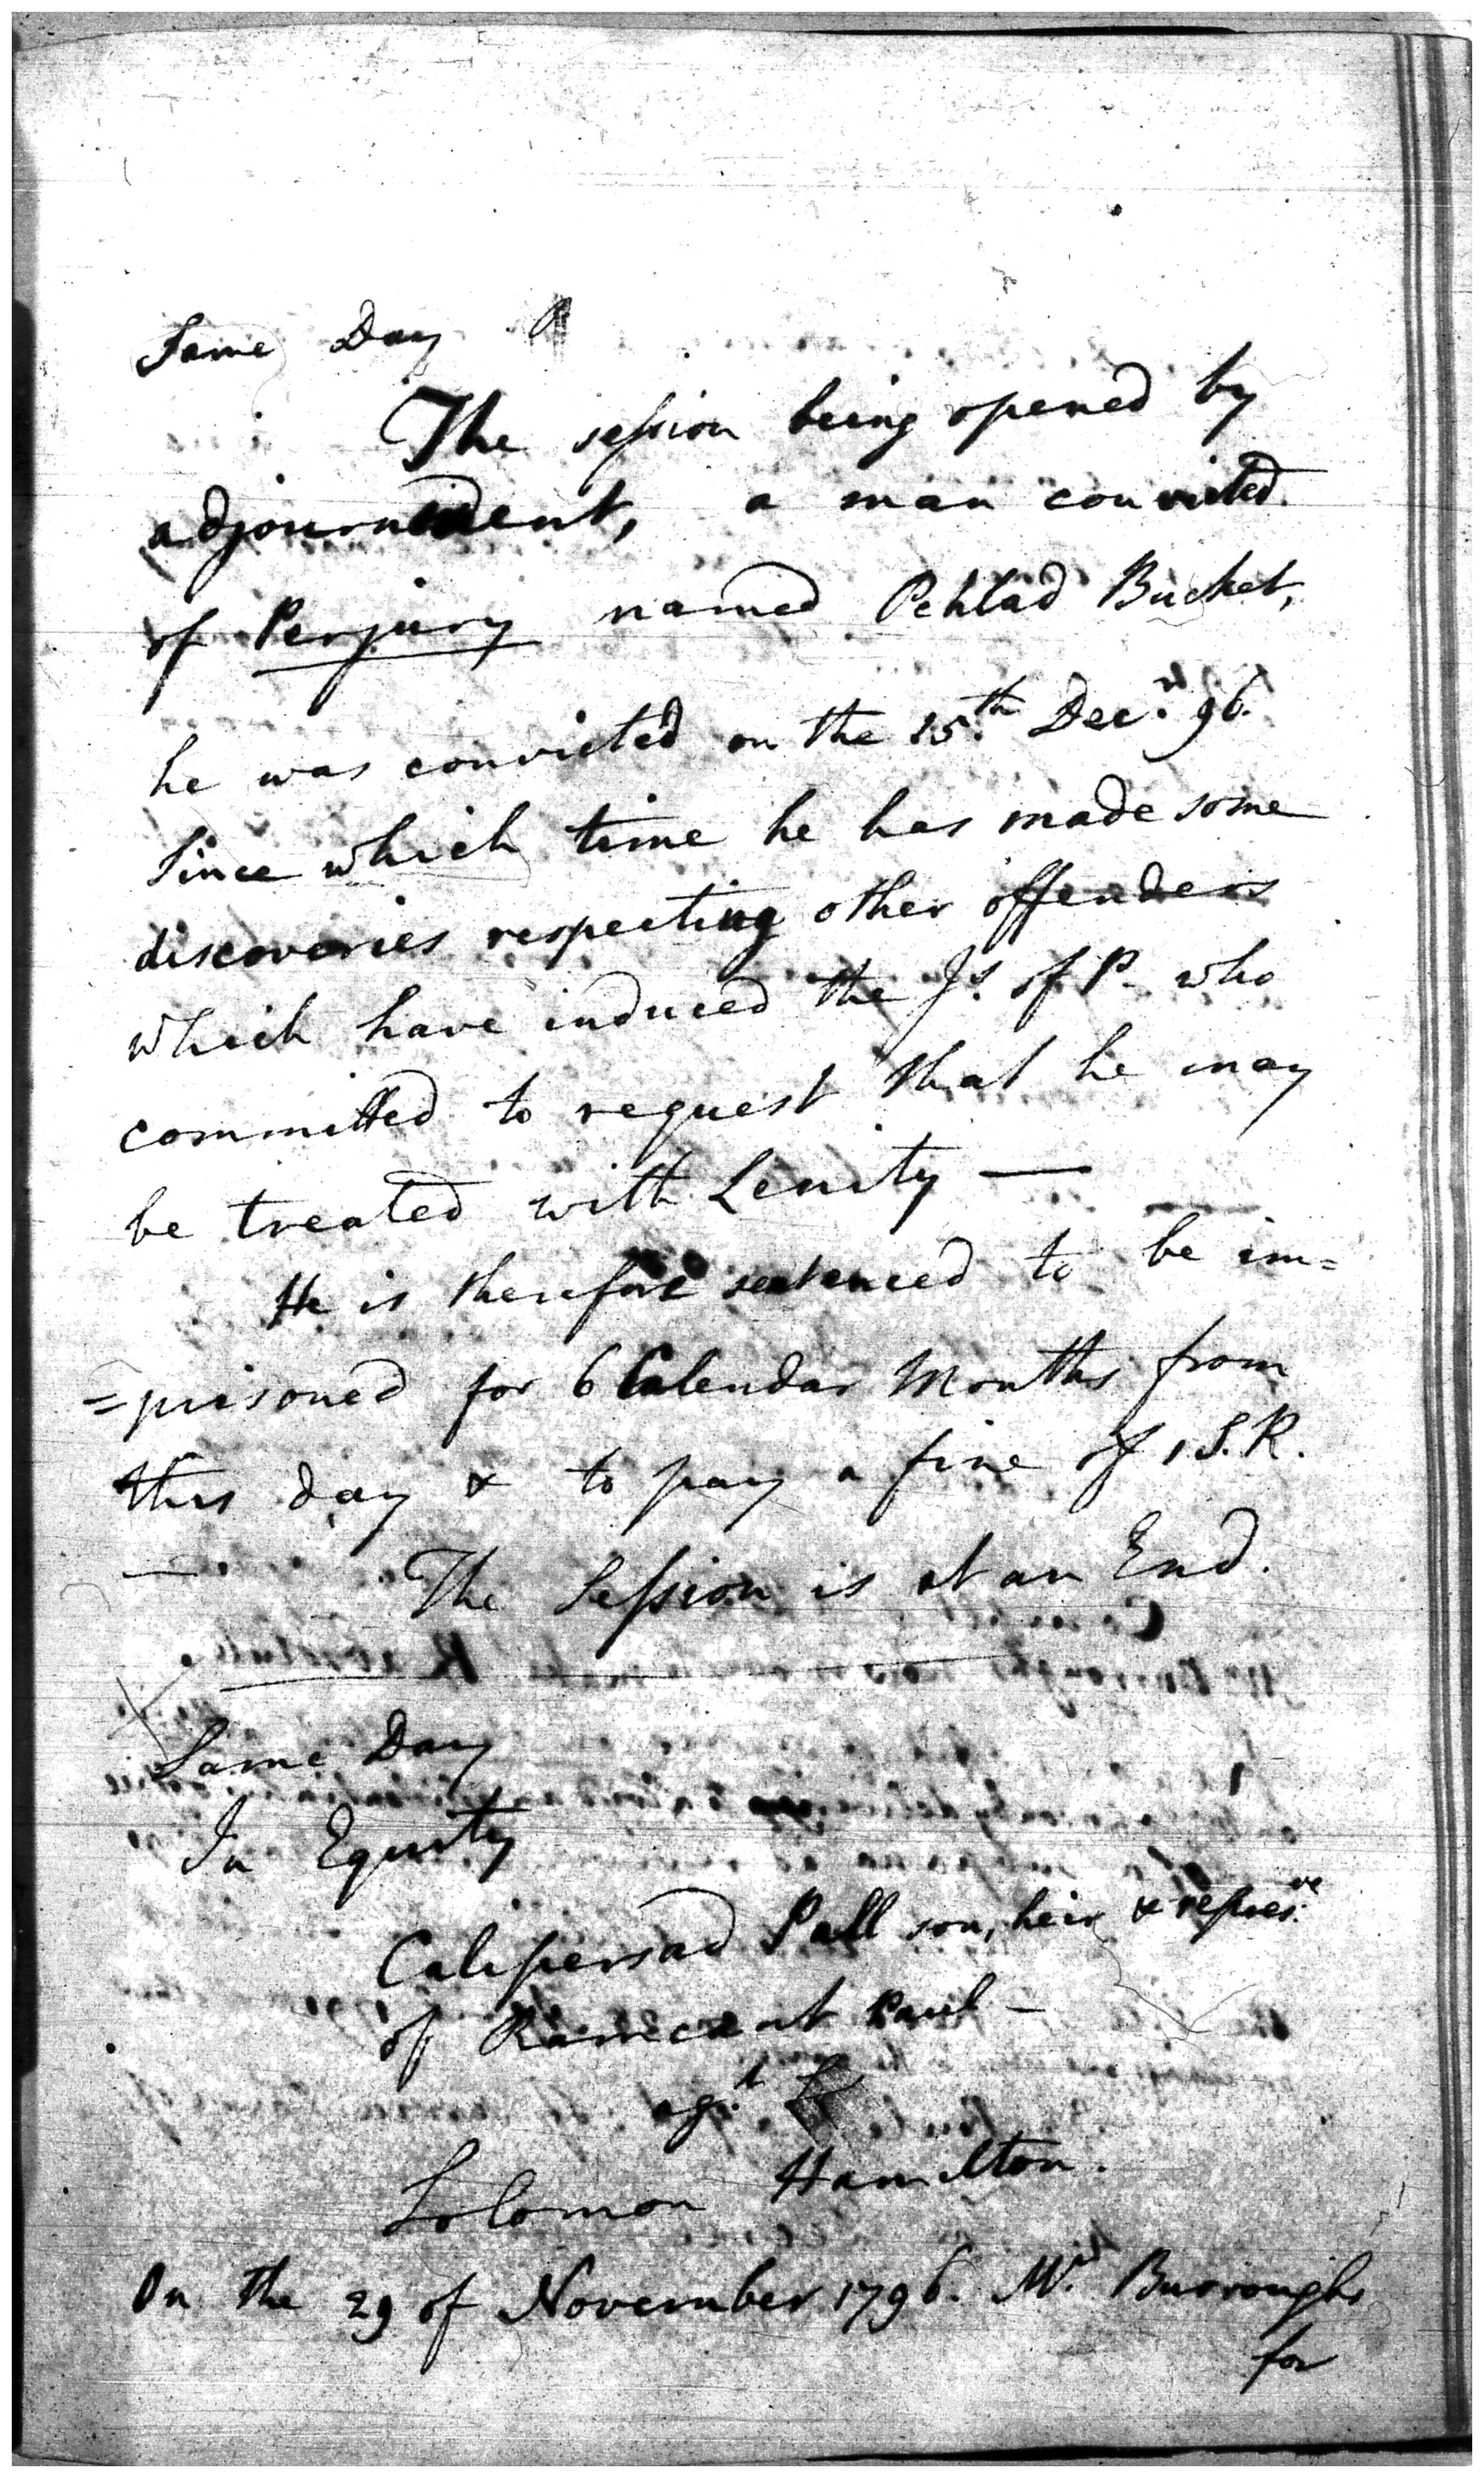 Same Day
The session being opened by
adjournment, a man convicted
of Perjury named Pehlad Bucket,
he was convicted on the 15.th Dec.r 96.
Since which time he has made some
discoveries respecting other offenders
which have induced the J.s of P. who
committed to request that he may
be treated with Lenity —
He is therefore sentenced to be im=
=prisoned for 6 Calendar Months from
this day & to pay a fine of 1 S.R.
— The Session is at an End.
Same Day
In Equity
Calipersad Pall son, heir & repres.ve
of Ramcaunt Paul —
ag.t
Solomon Hamilton.
On the 29 of November 1796. M.r Burroughs
for